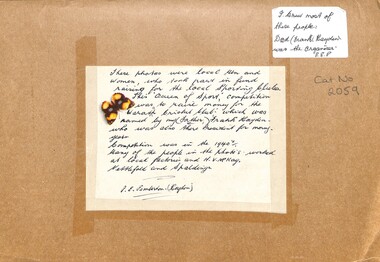 I knew most of
these people.
Dad (Frank Haydon)
was the organiser
Cat No
2059
These photos were local Men and
Women, who took part in fund
raising for the local Sporting Clubs.
This "Queen of Sport" competition
was to raise money for the
Cricket Club which was
named by my Father Frank Haydon.
who was also their President for many
years
Competition was in the 1940s.
Many of the people in the photos worked
at local factories and H.V. McKay,
Nettlefold and Spaldings
Pemberton (Haydon)